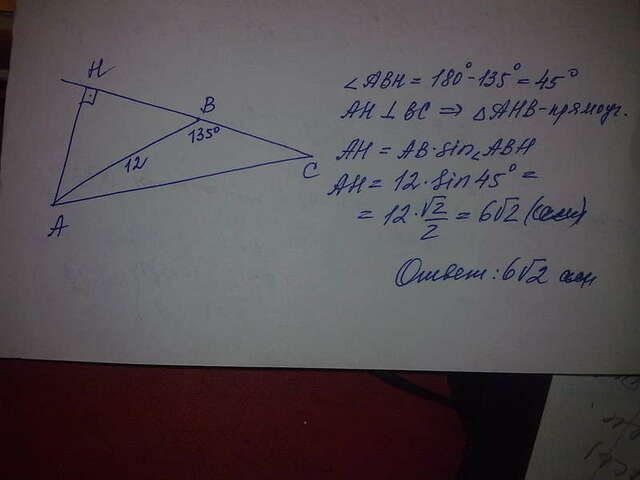 H
B
135°
12
C
A
∠ABH = 180° - 135° = 45°
AH ⊥ BC ⇒ △AHB - прямоуг.
AH = AB · sin∠ABH
AH = 12 · sin 45° =
= 12 · √2/2 = 6√2 (см)
Ответ: 6√2 см